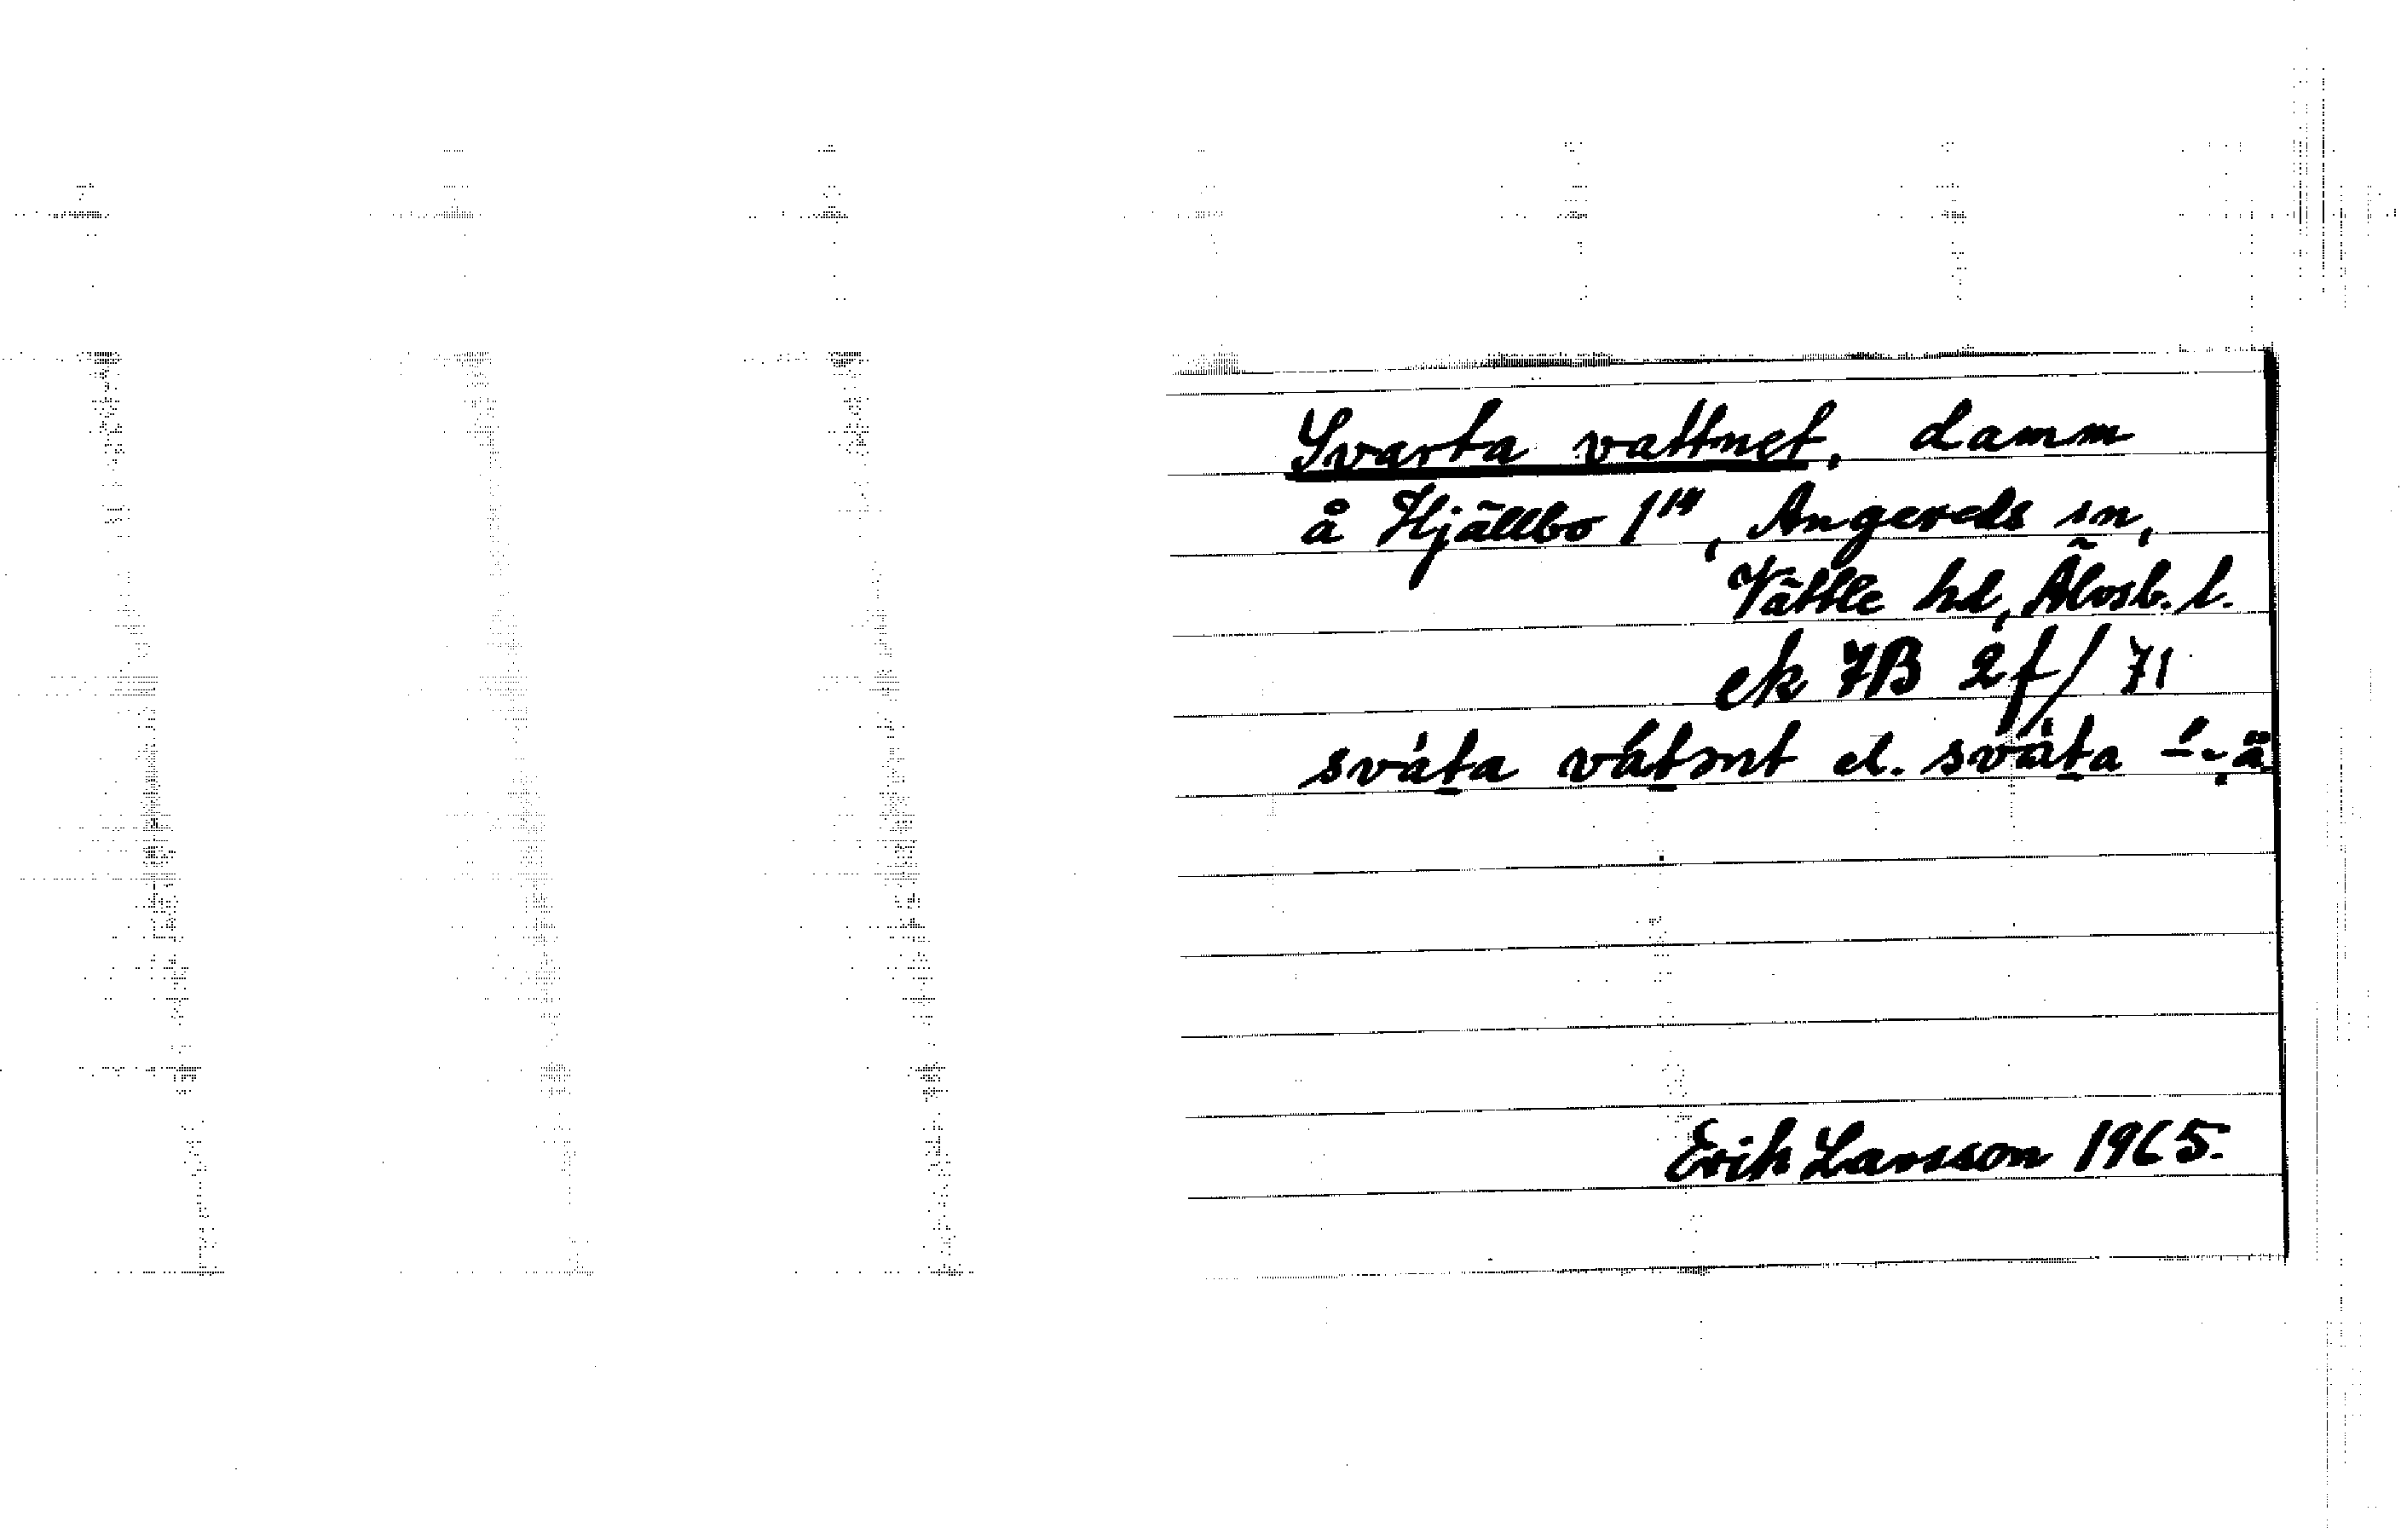 Svarta vattnet, damm
å Hjällbo 1¹⁴, Angereds sn,
Vättle hd, Älvsb. l.
ek 7B 2f/71
sváta vátənt el. sváta
Erik Larsson 1965.